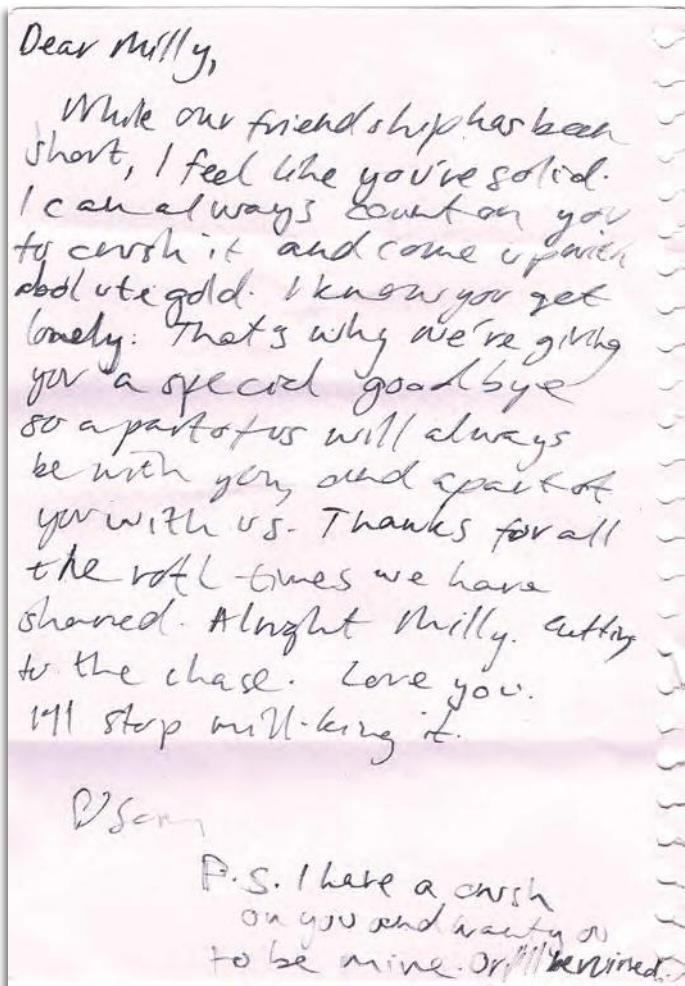 Dear Milly,
While our friendship has been
short, I feel like you're solid.
I can always count on you
to crush it and come up with
absolute gold. I know you get
lonely. That's why we're giving
you a special goodbye
so a part of us will always
be with you, and a part of
you with us. Thanks for all
the rofl times we have
shared. Alright Milly. Cutting
to the chase. Love you.
I'll stop mill-king it.
P.S. I have a crush
on you and want you
to be mine. Or I'll be ruined.